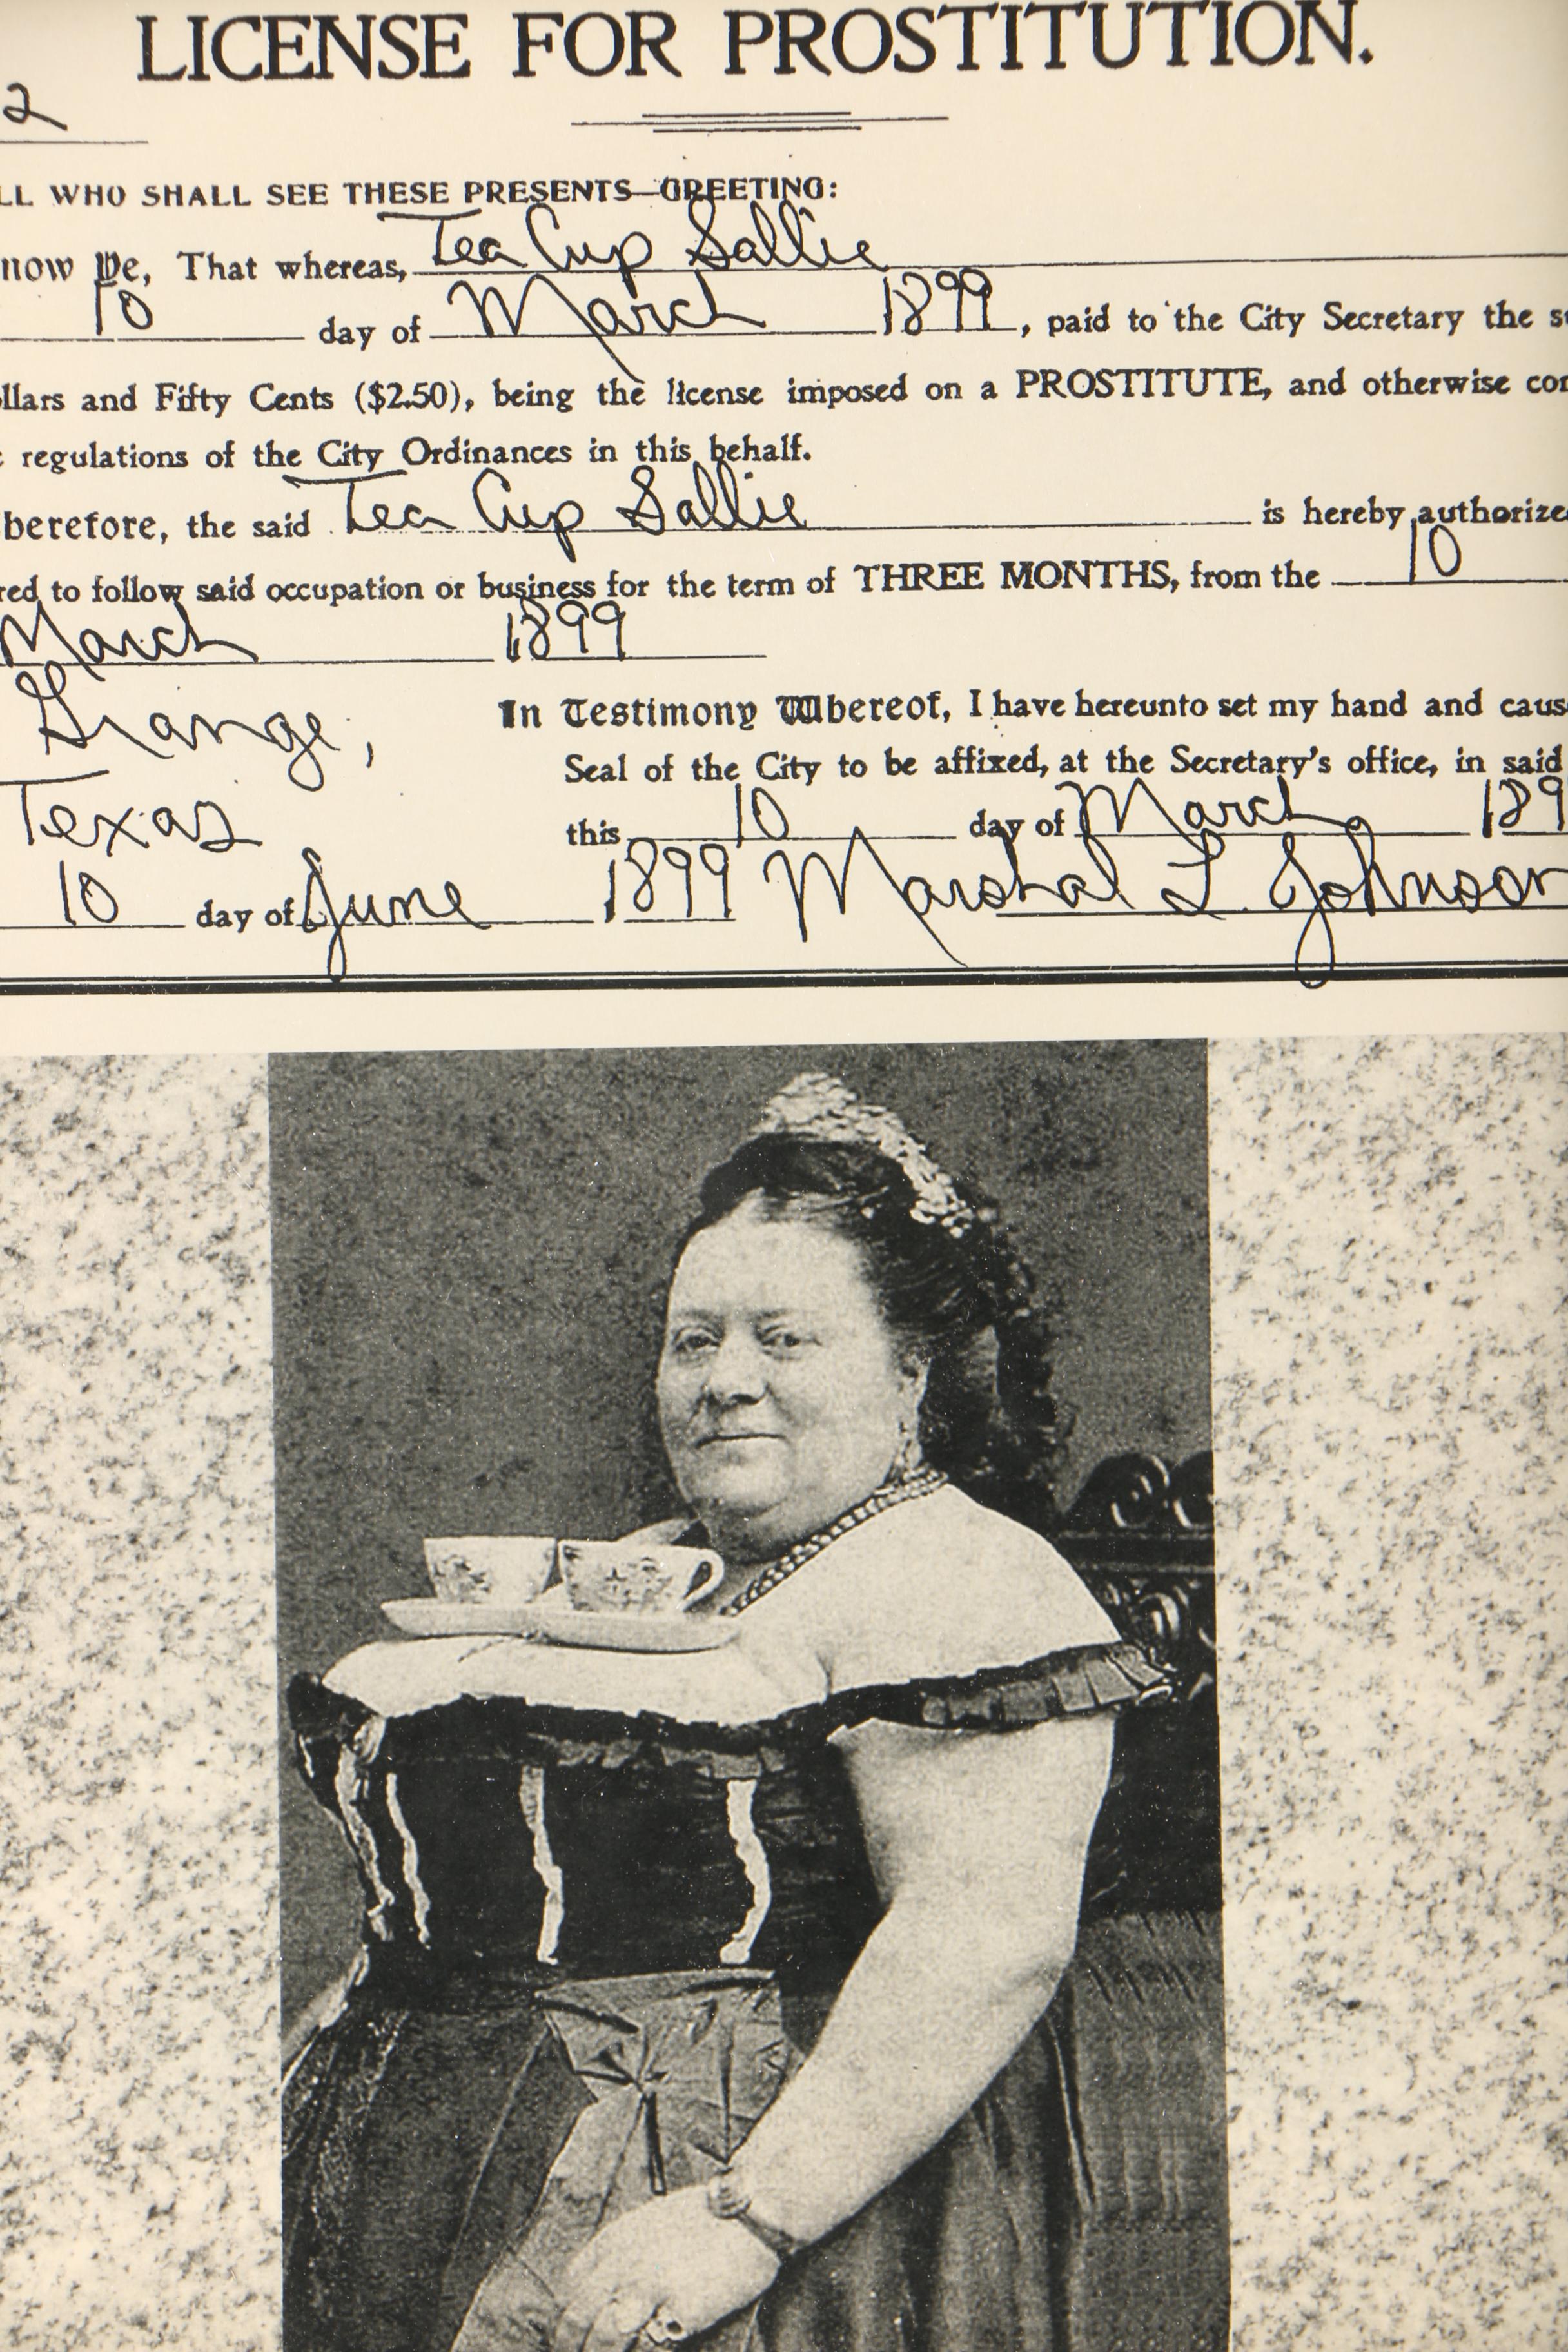 LICENSE FOR PROSTITUTION.
2
LL WHO SHALL SEE THESE PRESENTS—GREETING:
now Ye, That whereas, Tea Cup Sallie
10 day of March 1899, paid to the City Secretary the s
llars and Fifty Cents ($2.50), being the license imposed on a PROSTITUTE, and otherwise co
regulations of the City Ordinances in this behalf.
herefore, the said Tea Cup Sallie is hereby authorize
red to follow said occupation or business for the term of THREE MONTHS, from the 10
March 1899
Grange,
Texas
In Testimony Whereof, I have hereunto set my hand and caus
Seal of the City to be affixed, at the Secretary's office, in said
this 10 day of March 189
10 day of June 1899 Marshal L Johnson